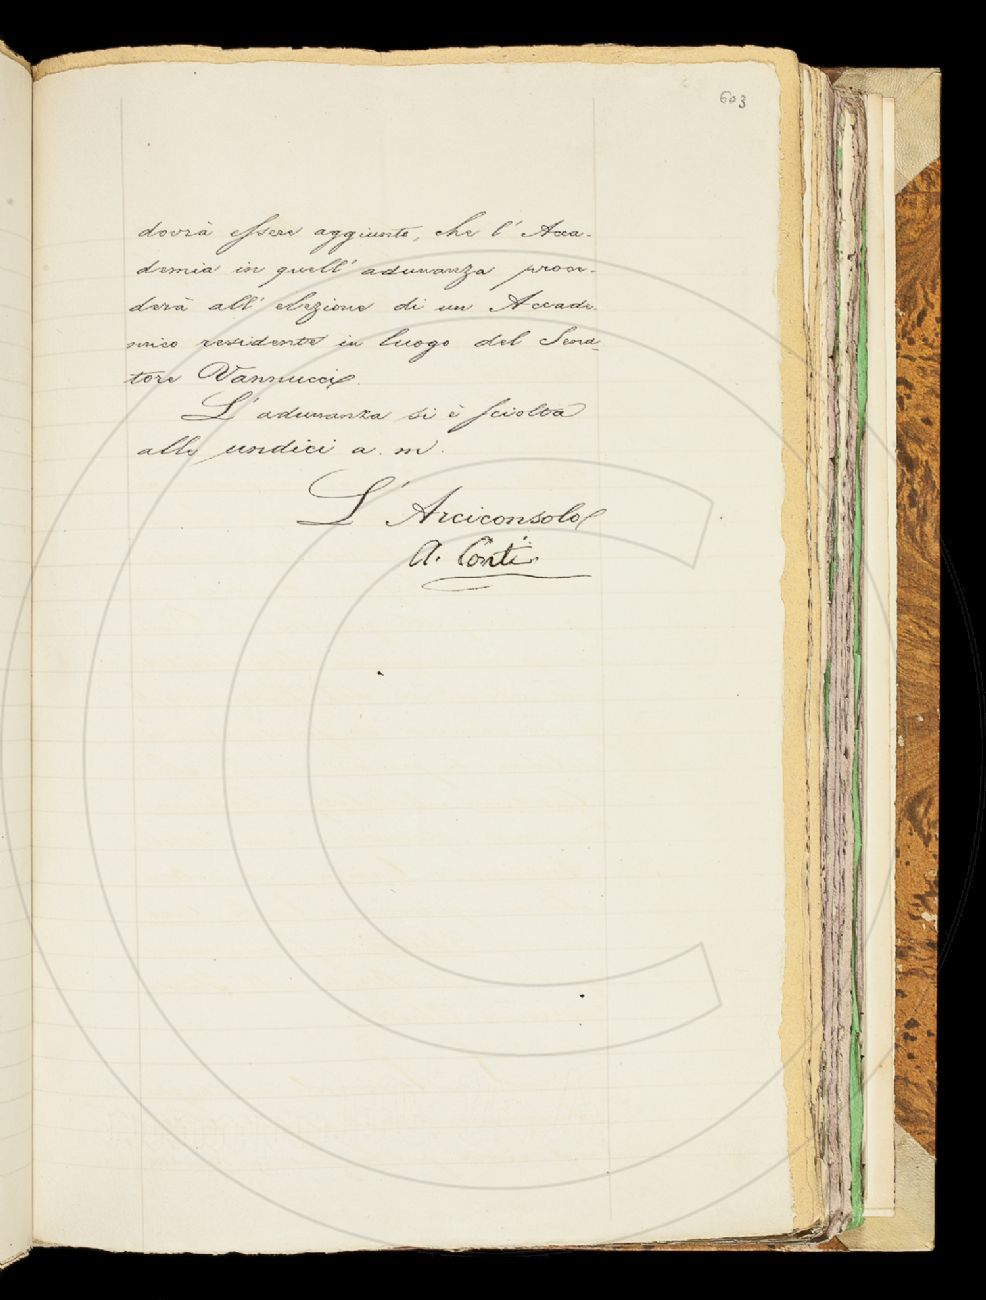 603
dovrà essere aggiunto, che l' Acca-
demia in quell' adunanza proce-
derà all' elezione di un Accade
mico residente in luogo del Sena-
tore Vannucci.
L' adunanza si è sciolta
alle undici a. m.
L' Arciconsolo
A. Conti